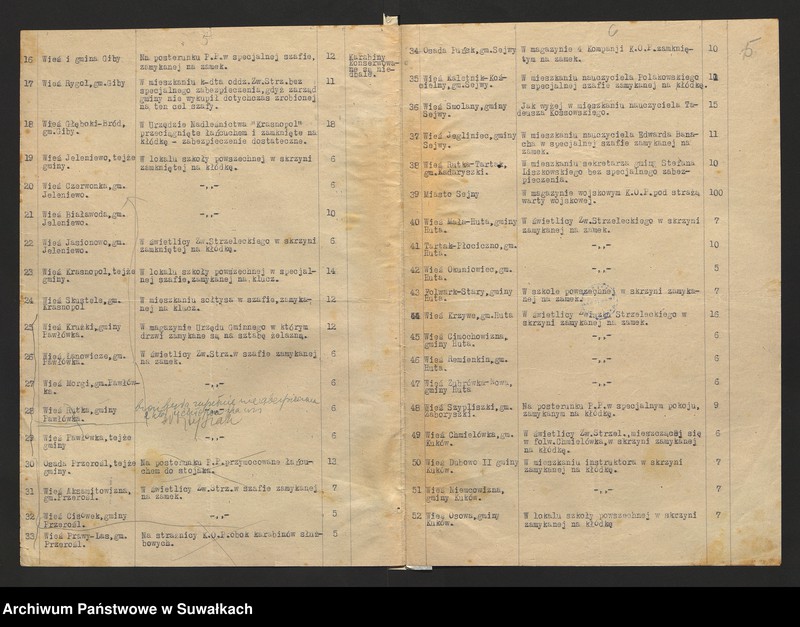 5
16 Wieś i gmina Giby Na posterunku P.P.w specjalnej szafie, zamykanej na zamek. 12 Karabiny konserwowane są niedbale.
17 Wieś Rygol,gm.Giby W mieszkaniu k-dta oddz.Zw.Strz.bez specjalnego zabezpieczenia,gdyż zarząd gminy nie wykupił dotychczas zrobionej na ten cel szafy. 11
18 Wieś Głęboki-Bród, gm.Giby. W Urzędzie Nadleśnictwa "Krasnopol" przeciągnięte łańcuchem i zamknięte na kłódkę - zabezpieczenie dostateczne. 18
19 Wieś Jeleniewo,tejże gminy. W lokalu szkoły powszechnej w skrzyni zamkniętej na kłódkę. 6
20 Wieś Czerwonka,gm. Jeleniewo. -,,- 6
21 Wieś Białawoda,gm. Jeleniewo. -,,- 10
22 Wieś Jasionowo,gm. Jeleniewo. W świetlicy Zw.Strzeleckiego w skrzyni zamkniętej na kłódkę. 6
23 Wieś Krasnopol,tejże gminy. W lokalu szkoły powszechnej w specjalnej szafie,zamykanej na klucz. 14
24 Wieś Skustele,gm. Krasnopol W mieszkaniu sołtysa w szafie,zamykanej na klucz. 12
25 Wieś Kruszki,gminy Pawłówka. W magazynie Urzędu Gminnego w którym drzwi zamykane są na sztabę żelazną. 12
26 Wieś Łanowicze,gm. Pawłówka. W świetlicy Zw.Strz.w szafie zamykanej na zamek. 6
27 Wieś Morgi,gm.Pawłówka. -,,- 6
28 Wieś Rutka,gminy Pawłówka. 6
29 Wieś Pawłówka,tejże gminy -,,- 6
30 Osada Przerośl,tejże gminy. Na posterunku P.P.przymocowane łańcuchem do stojaka. 13
31 Wieś Akzamitowizna, gm.Przerośl. W świetlicy Zw.Strz.w szafie zamykanej na zamek. 7
32 Wieś Cisówek,gminy Przerośl. -,,- 5
33 Wieś Prawy-Las,gm. Przerośl. Na strażnicy K.O.P.obok karabinów służbowych. 5
6
5.
34 Osada Puńsk,gm.Sejwy W magazynie 4 Kompanji K.O.P.zamkniętym na zamek. 10
35 Wieś Kaletnik-Kościelny,gm.Sejwy. W mieszkaniu nauczyciela Polakowskiego w specjalnej szafie zamykanej na kłódkę. 12
36 Wieś Smolany,gminy Sejwy. Jak wyżej w mieszkaniu nauczyciela Tadeusza Kossowskiego. 15
37 Wieś Jegliniec,gminy Sejwy. W mieszkaniu nauczyciela Edwarda Banacha w specjalnej szafie zamykanej na zamek. 11
38 Wieś Rutka-Tartak, gm.Kadaryszki. W mieszkaniu sekretarza gminy Stefana Liszkowskiego bez specjalnego zabezpieczenia. 10
39 Miasto Sejny W magazynie wojskowym K.O.P.pod strażą warty wojskowej. 100
40 Wieś Mała-Huta,gminy Huta. W świetlicy Zw.Strzeleckiego w skrzyni zamykanej na zamek. 7
41 Tartak-Płociczno,gm. Huta. -,,- 10
42 Wieś Okuniowiec,gm. Huta. -,,- 5
43 Folwark-Stary,gminy Huta. W szkole powszechnej w skrzyni zamykanej na zamek. 7
44 Wieś Krzywe,gm.Huta W świetlicy Związku Strzeleckiego w skrzyni zamykanej na zamek. 16
45 Wieś Cimochowizna, gminy Huta. -,,- 6
46 Wieś Remienkiń,gm. Huta. -,,- 6
47 Wieś Dubrówka-Nowa, gminy Huta -,,- 6
48 Wieś Szypliszki,gm. Zaboryszki. Na posterunku P.P.w specjalnym pokoju, zamykanym na kłódkę. 9
49 Wieś Chmielówka,gm. Kuków. W świetlicy Zw.Strzel.,mieszczącej się w folw.Chmielówka,w skrzyni zamykanej na kłódkę. 6
50 Wieś Dubowo II gminy Kuków. W mieszkaniu instruktora w skrzyni zamykanej na kłódkę. 7
51 Wieś Niemcowizna, gminy Kuków. -,,- 7
52 Wieś Osowa,gminy Kuków. W lokalu szkoły powszechnej w skrzyni zamykanej na kłódkę 7
Archiwum Państwowe w Suwałkach